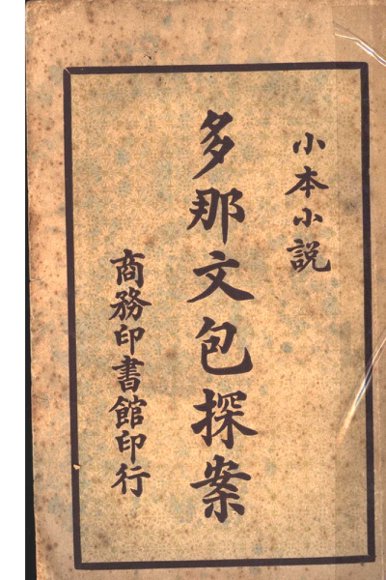 小本小説
多那文包探案
商務印書館印行